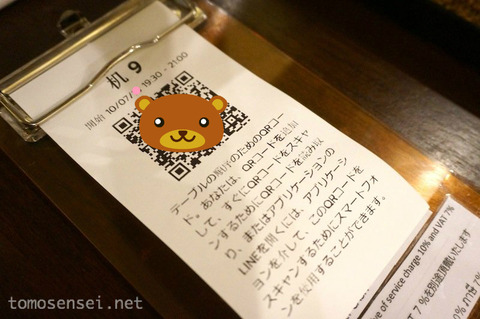 机 9
開始 10/07/ 19:30 - 21:00
テーブルの順序のためのQRコー
ド。あなたは、QRコードを追加
して、すぐにQRコードをスキャ
ンするためにQRコードを読み取
り、またはアプリケーションの
LINEを開くには、アプリケーシ
ョンを介して、このQRコードを
スキャンするためにスマートフォ
ンを使用することができます。
ve of service charge 10% and VAT 7%
T 7%を別途頂戴いたします
7%
tomosensei.net